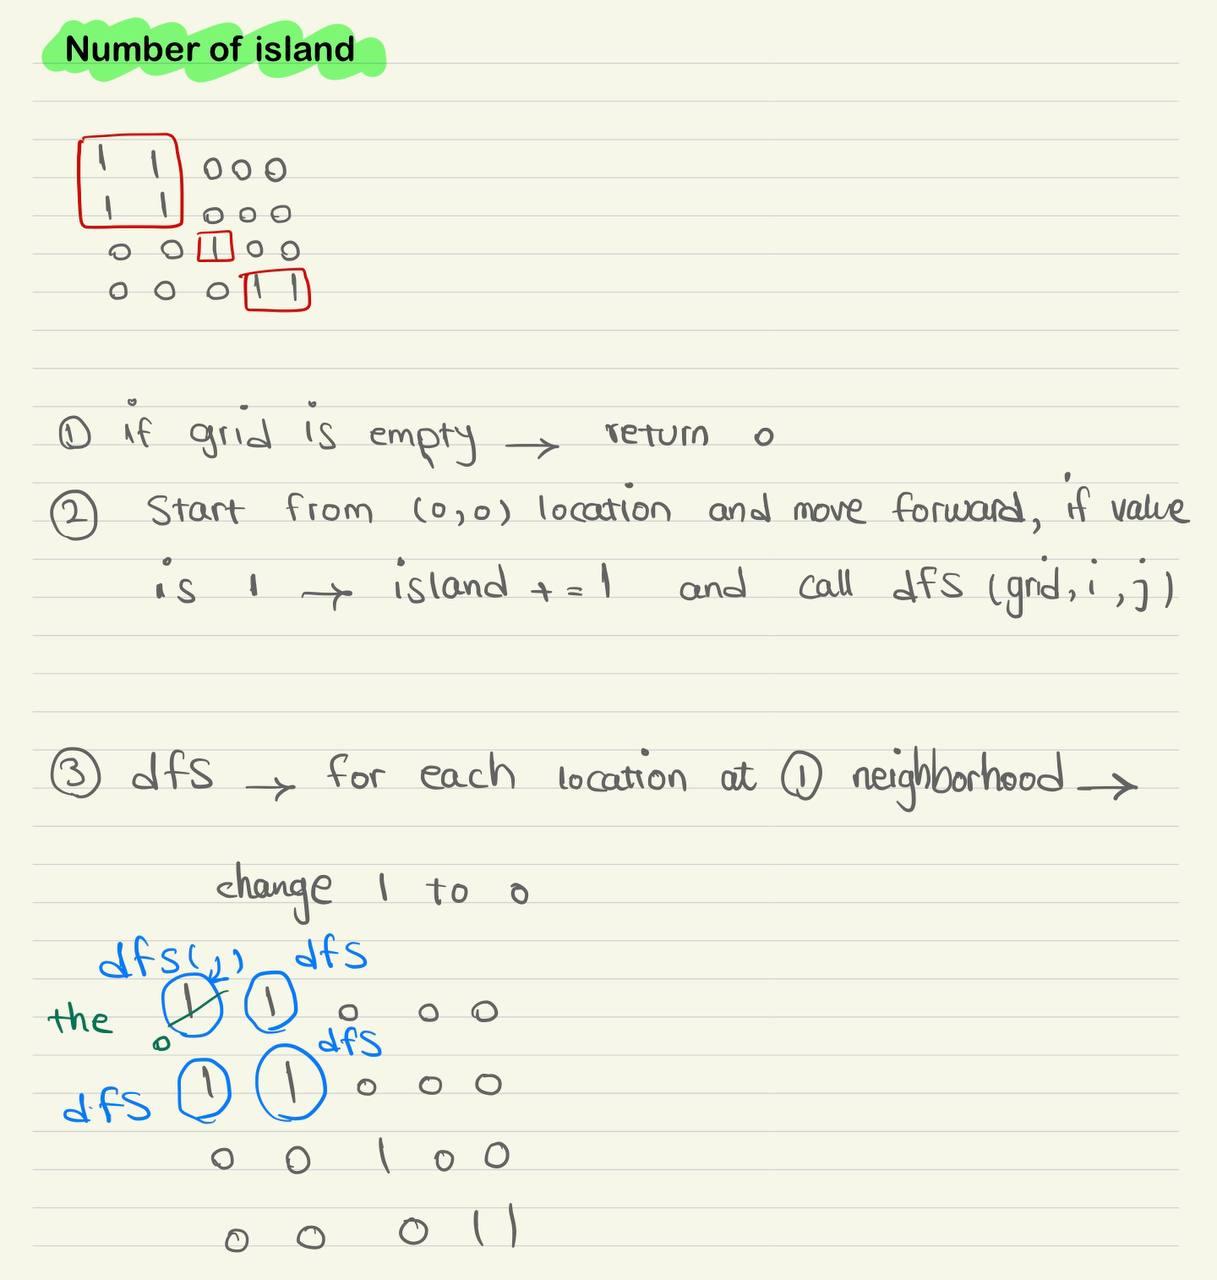 Number of island
1 1 0 0 0
1 1 0 0 0
0 0 1 0 0
0 0 0 1 1
① if grid is empty → return 0
② Start from (0,0) location and move forward, if value
is 1 → island += 1 and call dfs (grid, i, j)
③ dfs → for each location at ① neighborhood →
change 1 to 0
dfs(j) dfs
the 1 1 0 0 0
0 dfs
dfs 1 1 0 0 0
0 0 1 0 0
0 0 0 1 1